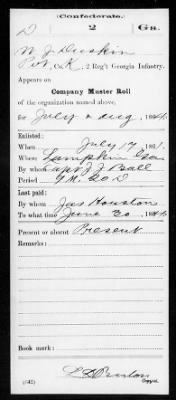 (Confederate.)
D 2 Ga.
W J Duskin
Pvt, Co. K, 2 Reg't Georgia Infantry.
Appears on
Company Muster Roll
of the organization named above,
for July & Aug, 1864.
Enlisted:
When July 17, 1861.
Where Lumpkin Geo
By whom Capt J J Ball
Period
Last paid:
By whom Jas Houston
To what time June 30, 1864.
Present or absent Present
Remarks:
Book mark:
(642)
Copyist.